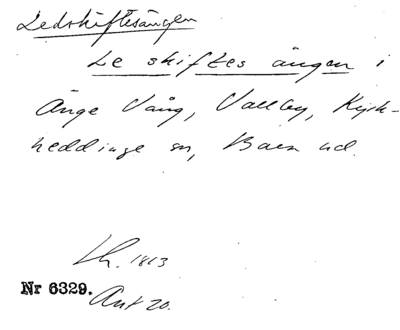 Ledskiftesängen
Le skiftes ängen i
Änge Vång, Vallby, Kyrk-
heddinge sn, Bara hd.
Lh. 1813
Nr 6329.
Akt 20.